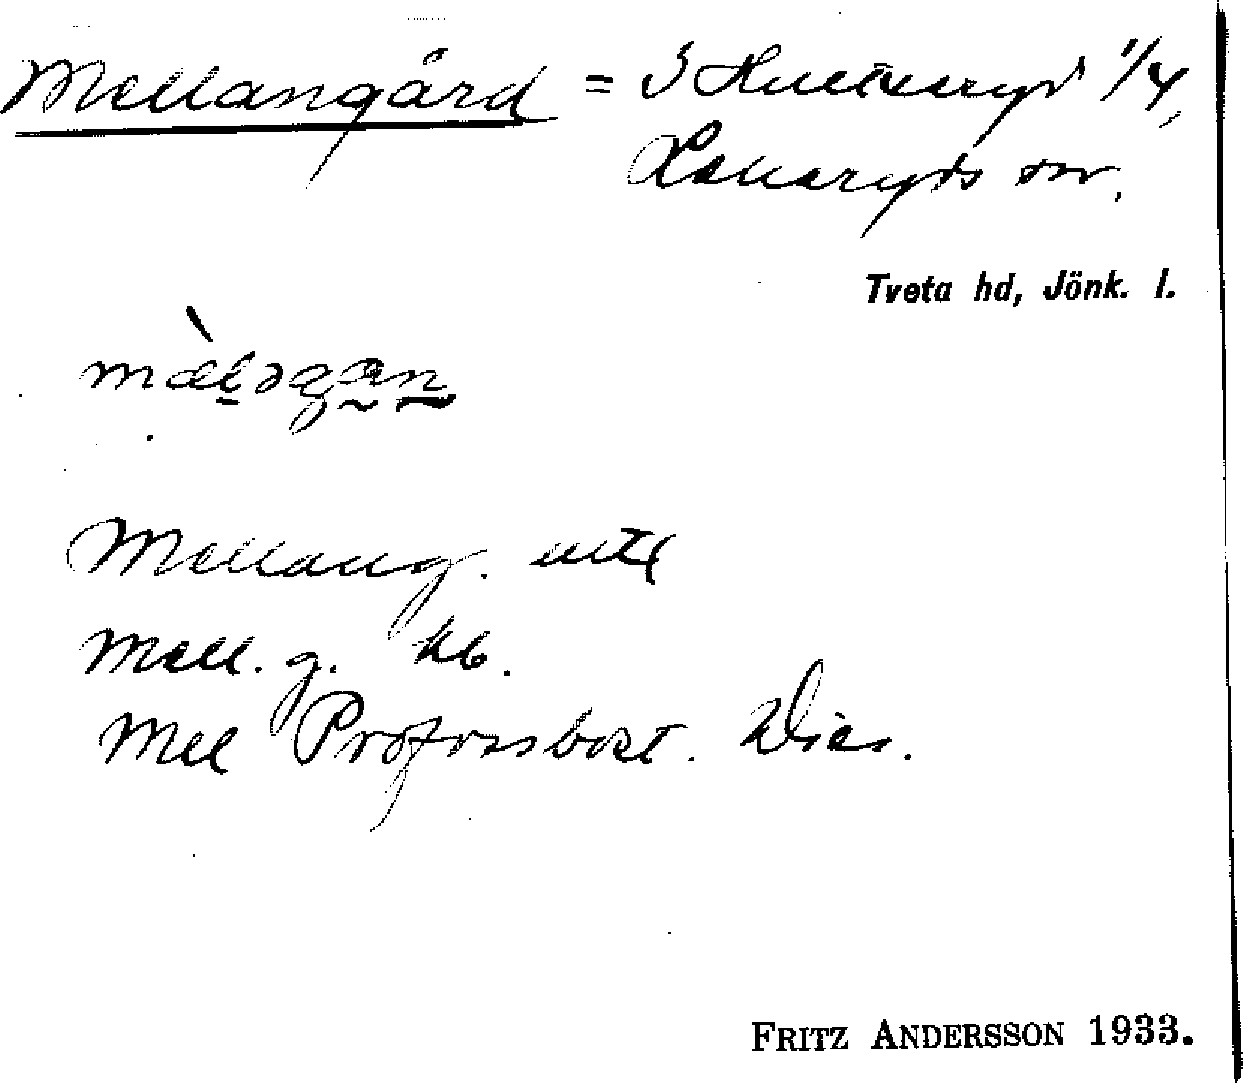 Mellangård = 3 Hultseryd 1/4,
Lekeryds sn.
Tveta hd, Jönk. l.
mæ̀ləgan
Mellang. uttl
Mell. g. kb.
Mel Profossbost. Dies.
FRITZ ANDERSSON 1933.